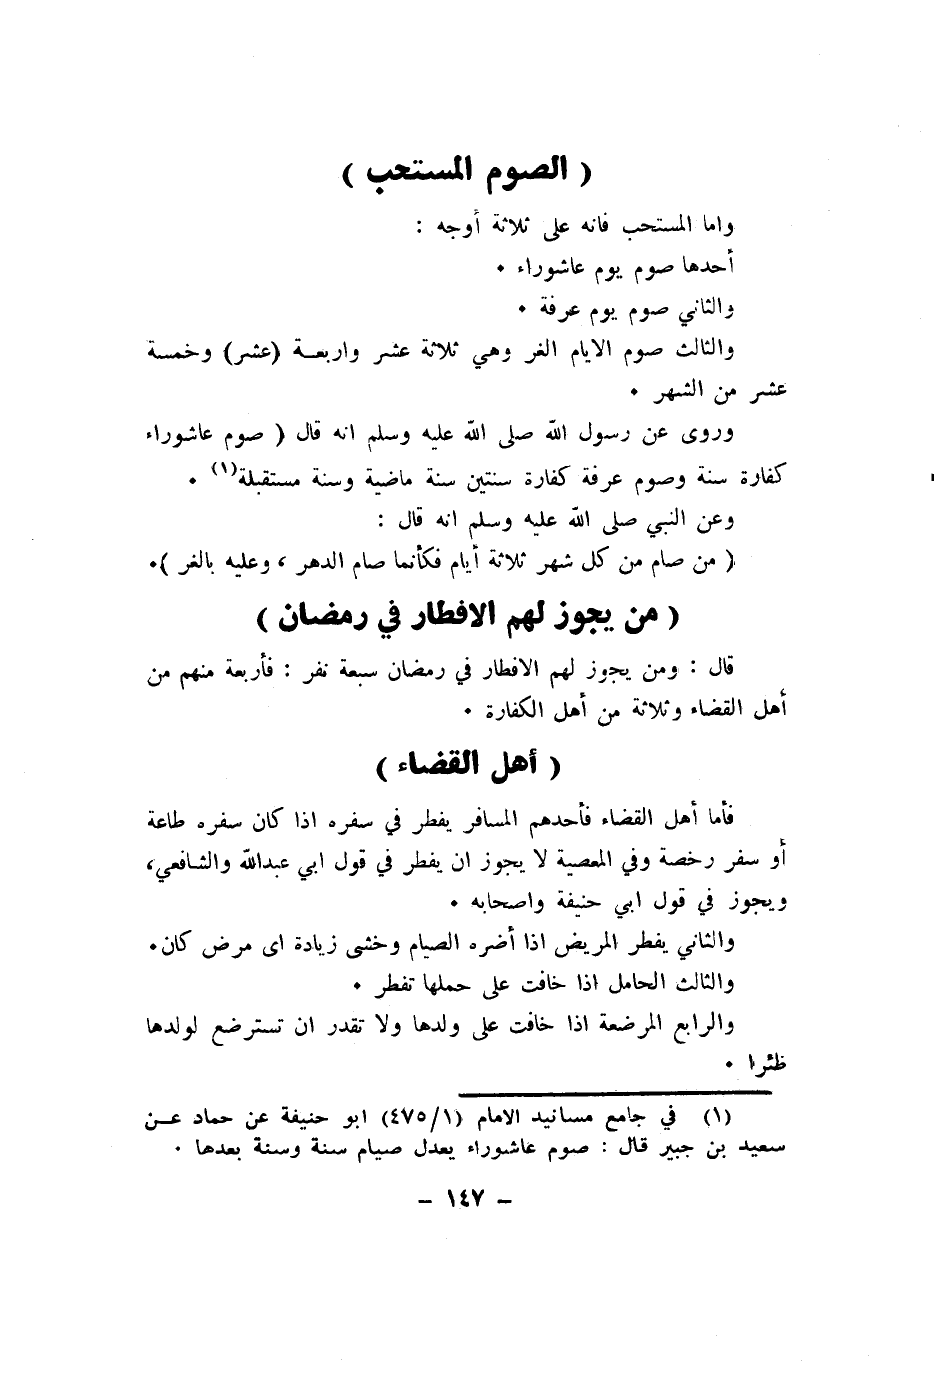 ( الصوم المستحب )
واما المستحب فانه على ثلاثة أوجه :
أحدها صوم يوم عاشوراء .
والثاني صوم يوم عرفة .
والثالث صوم الايام الغر وهي ثلاثة عشر واربعة (عشر) وخمسة
عشر من الشهر .
وروى عن رسول الله صلى الله عليه وسلم انه قال ( صوم عاشوراء
كفارة سنة وصوم عرفة كفارة سنتين سنة ماضية وسنة مستقبلة(١) .
وعن النبي صلى الله عليه وسلم انه قال :
( من صام من كل شهر ثلاثة أيام فكأنما صام الدهر ، وعليه بالغر ).
( من يجوز لهم الافطار في رمضان )
قال : ومن يجوز لهم الافطار في رمضان سبعة نفر : فأربعة منهم من
أهل القضاء وثلاثة من أهل الكفارة .
( أهل القضاء )
فأما أهل القضاء فأحدهم المسافر يفطر في سفره اذا كان سفره طاعة
أو سفر رخصة وفي المعصية لا يجوز ان يفطر في قول ابي عبدالله والشافعي،
ويجوز في قول ابي حنيفة واصحابه .
والثاني يفطر المريض اذا أضره الصيام وخشى زيادة اى مرض كان.
والثالث الحامل اذا خافت على حملها تفطر .
والرابع المرضعة اذا خافت على ولدها ولا تقدر ان تسترضع لولدها
ظئرا .
(١) في جامع مسانيد الامام (٤٧٥/١) ابو حنيفة عن حماد عن
سعيد بن جبير قال : صوم عاشوراء يعدل صيام سنة وسنة بعدها .
– ١٤٧ –